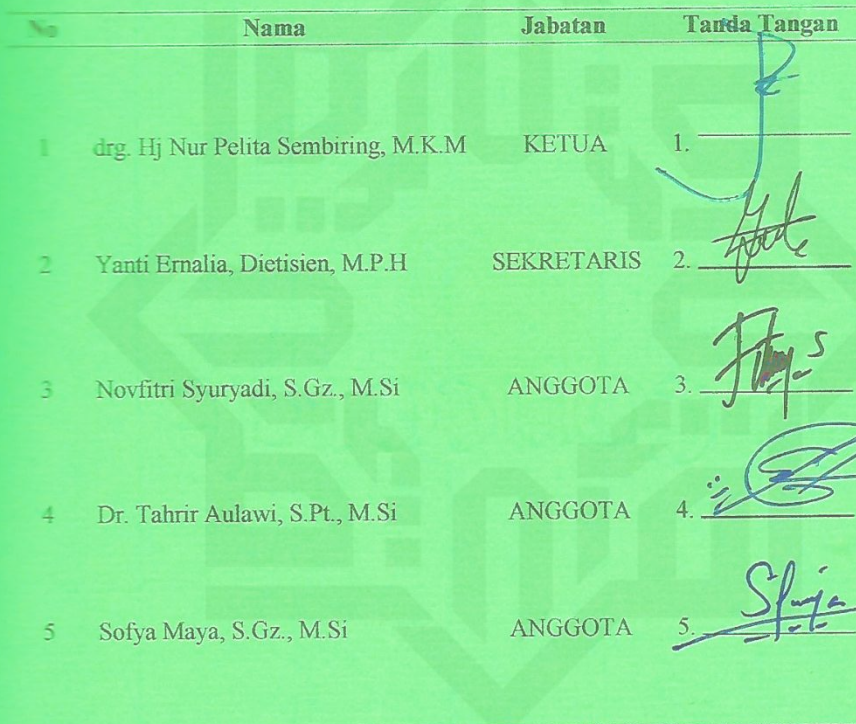 No Nama Jabatan Tanda Tangan
1 drg. Hj Nur Pelita Sembiring, M.K.M KETUA 1.
2 Yanti Ernalia, Dietisien, M.P.H SEKRETARIS 2.
3 Novfitri Syuryadi, S.Gz., M.Si ANGGOTA 3.
4 Dr. Tahrir Aulawi, S.Pt., M.Si ANGGOTA 4.
5 Sofya Maya, S.Gz., M.Si ANGGOTA 5.